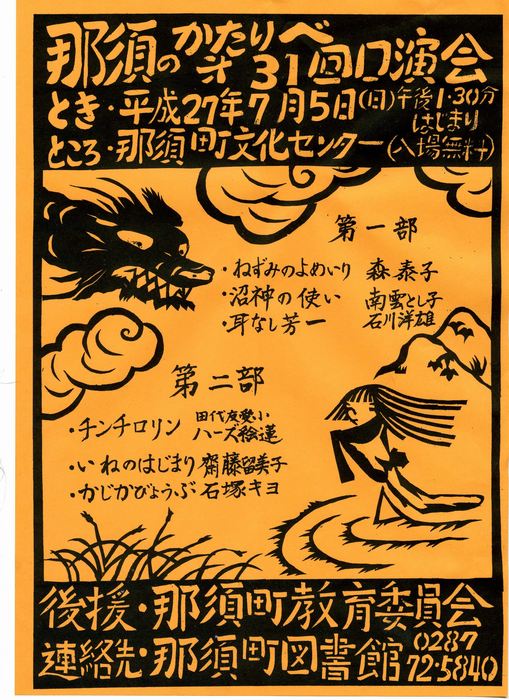 那須のかたりべ
第31回口演会
とき・平成27年7月5日(日)午後1・30分はじまり
ところ・那須町文化センター(入場無料)
第一部
・ねずみのよめいり 森 泰子
・沼神の使い 南雲とし子
・耳なし芳一 石川洋雄
第二部
・チンチロリン 田代友愛小 ハーズ絵蓮
・いねのはじまり 齋藤留美子
・かじかびょうぶ 石塚キヨ
後援・那須町教育委員会
連絡先・那須町図書館 0287 72・5840